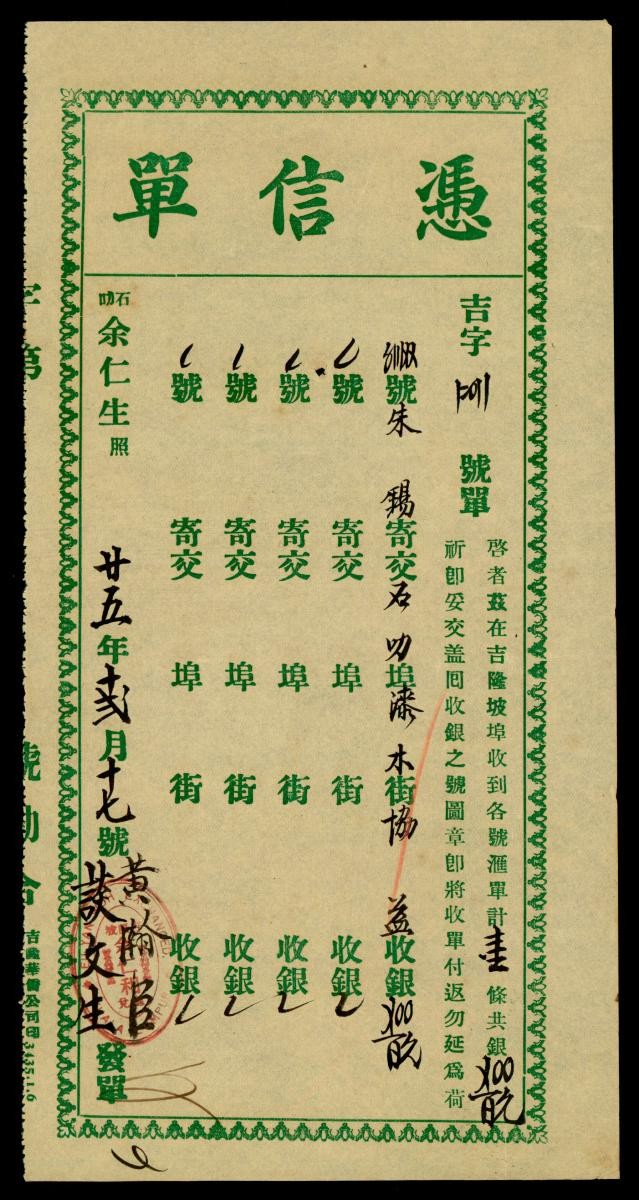 憑信單
吉字 號單
啓者茲在吉隆坡埠收到各號滙單計圭條共銀 100百元
祈卽妥交盖囘收銀之號圖章卽將收單付返勿延爲荷
號朱錫寄交石叻埠漆木街協益收銀 100百元
號 寄交 埠 街 收銀
號 寄交 埠 街 收銀
號 寄交 埠 街 收銀
號 寄交 埠 街 收銀
石叻余仁生照
廿五年十弍月十七號黃瀚臣 談文生 發單
字第 號勘合
吉隆華僑公司印 3435.1.6